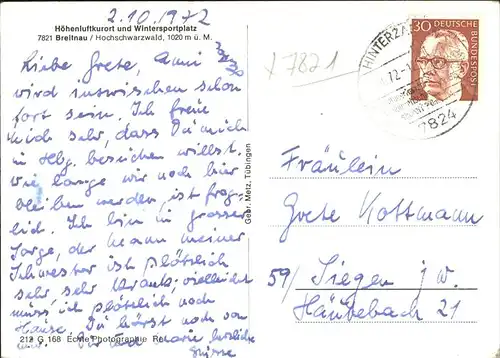 2.10.1972
Höhenluftkurort und Wintersportplatz
7821 Breitnau / Hochschwarzwald, 1020 m ü. M.
Liebe Grete, Anni
wird inzwischen schon
fort sein. Ich freue
mich sehr, dass Du mich
in Hbg. besuchen willst
wie lange wir noch hier
bleiben werden, ist frag-
lich. Ich bin in grosser
Sorge, der Mann meiner
Schwester ist plötzlich
sehr sehr krank, vielleicht
muss ich plötzlich nach
Hause. Du hörst noch von
mir. Für herzliche
Grüsse
212 G 168 Echte Photographie
Gebr. Metz, Tübingen
7821
30 DEUTSCHE BUNDESPOST
HINTERZA
7824
Fräulein
Grete Kottmann
59/ Siegen i/W.
Häutebach 21